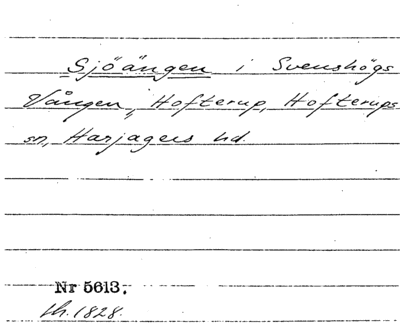 Sjöängen i Svenshögs
Vången, Hofterup, Hofterups
sn, Harjagers hd.
Nr 5613.
1828.